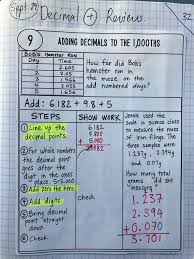 Sept. 29 Decimal + Review
32
9 ADDING DECIMALS TO THE 1,000THS
Bob's Hamster Run
Day Time
2 5.605
4 2.05
6 1.456
8 2.536
How far did Bob's
hamster run in
the maze on the
add numbered days?
Add: 6.182 + 9.8 + 5
STEPS
① Line up the
decimal points.
② For whole numbers
the decimal point
goes after the
digit in the ones
place. 5=5.000
③ Add zero the hero.
④ Add digits
⑤ Bring decimal
point straight
down
⑥ Check
SHOW WORK
6.182
9.800
+ 5.000
20.982
check
Jennie used the
scale in science class
to measure the mass
of iron filings. The
three samples were
1.237g, 2.394g
and 0.07g.
How many total
grams did she
measure?
1.237
2.394
+0.070
3.701